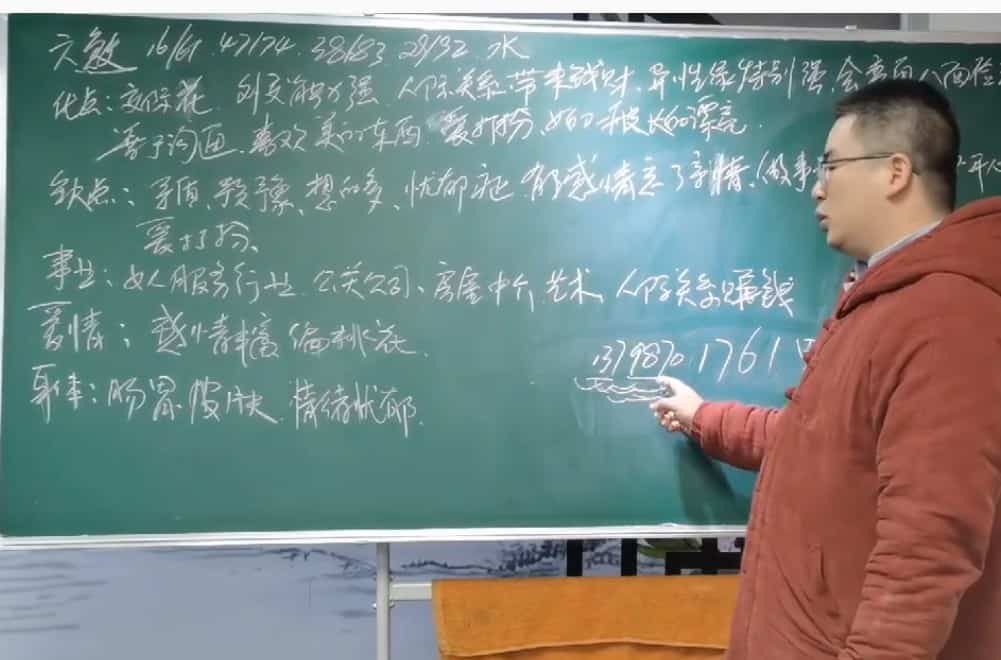 六煞 16/61. 47/74. 38/83 29/92 水
优点：交际花. 外交能力强. 人际关系.带来钱财. 异性缘特别强.会
善于沟通、喜欢美的东西. 爱打扮、皮长的漂亮.
缺点：矛盾、犹豫、想的多、忧郁症. 有了感情忘了亲情、做事
爱打扮、
事业：女人服务行业. 公关公司、房屋中介. 艺术、人际关系赚钱
爱情：感情丰富偏桃花.
身体：肠胃.皮肤.情绪忧郁.
1379870.1761